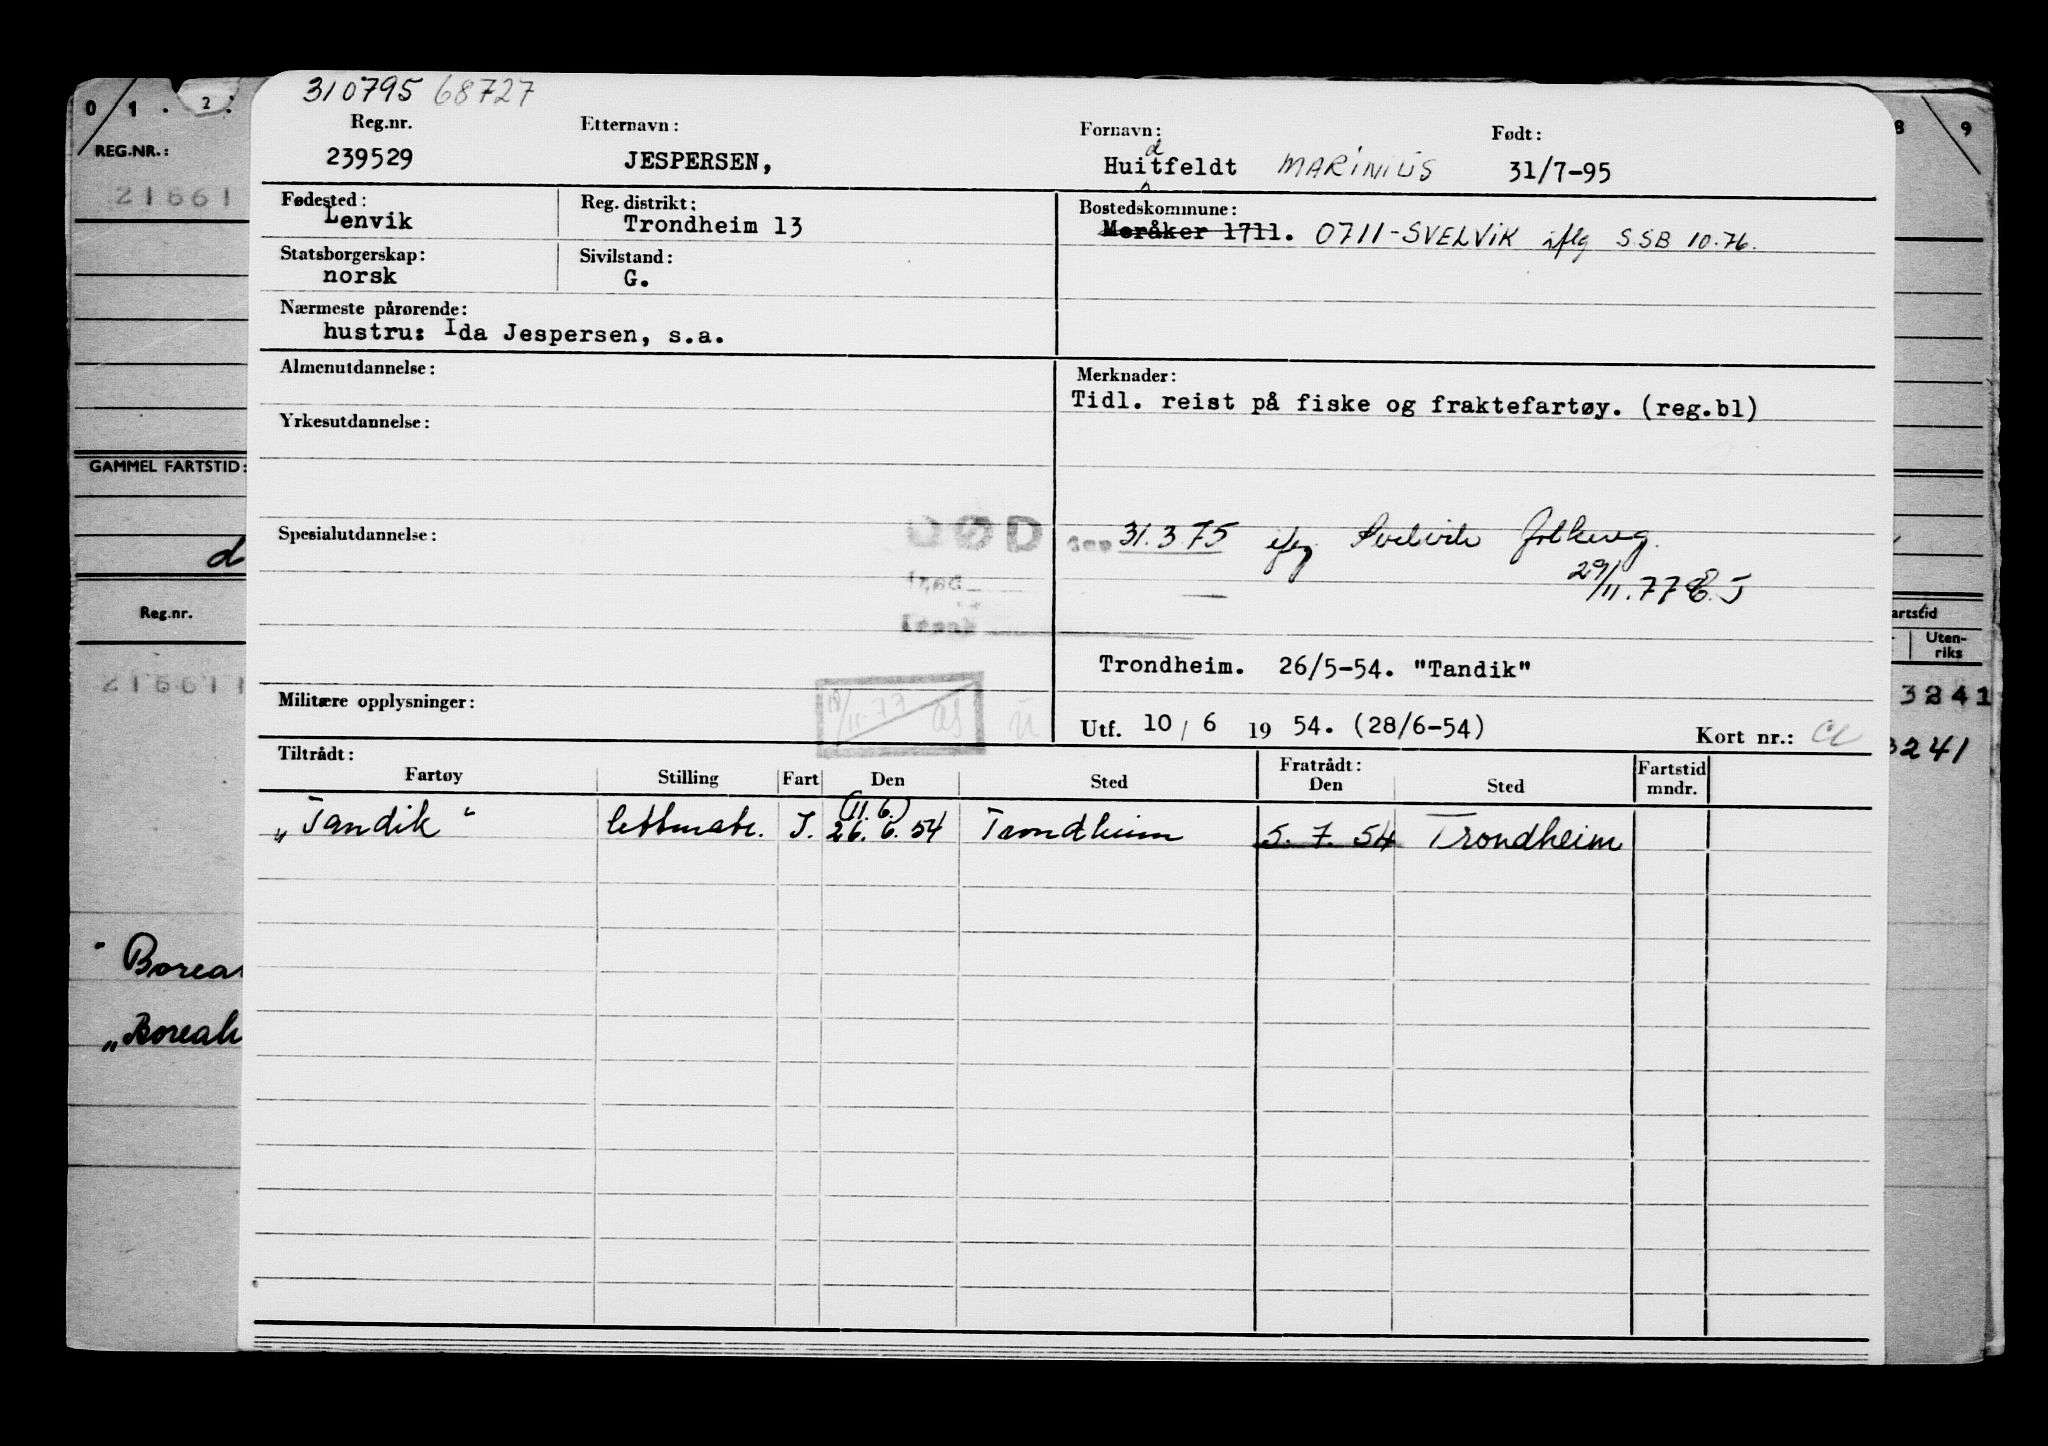 310795 68727
0 1 . 2 .
8 9
Reg.nr. Etternavn: Fornavn: Født:
REG.NR.:
239529 JESPERSEN, Huitfeldt MARINIUS 31/7-95
d
21661
Fødested: Reg. distrikt: Bostedskommune:
Lenvik Trondheim 13 Meråker 1711. 0711-SVELVIK iflg SSB 10.76.
Statsborgerskap: Sivilstand:
norsk G.
Nærmeste pårørende:
hustru: Ida Jespersen, s.a.
Almenutdannelse: Merknader:
Tidl. reist på fiske og fraktefartøy. (reg.bl)
Yrkesutdannelse:
GAMMEL FARTSTID:
Spesialutdannelse: DØD den 31.3.75 iflg. Svelvik folkereg.
d
29/11.77 E.J
Reg.nr.
artstid
Uten-
riks
Trondheim. 26/5-54. "Tandik"
216611
3241
Militære opplysninger: 18/11-77
Utf. 10 / 6 19 54. (28/6-54) Kort nr.:
3241
Tiltrådt: Fratrådt:
Fartøy Stilling Fart Den Sted Den Sted Fartstid mndr.
(11.6.)
"Tandik" lettmatr. I. 26.6.54 Trondheim 5.7.54 Trondheim
"Borea
"Boreal